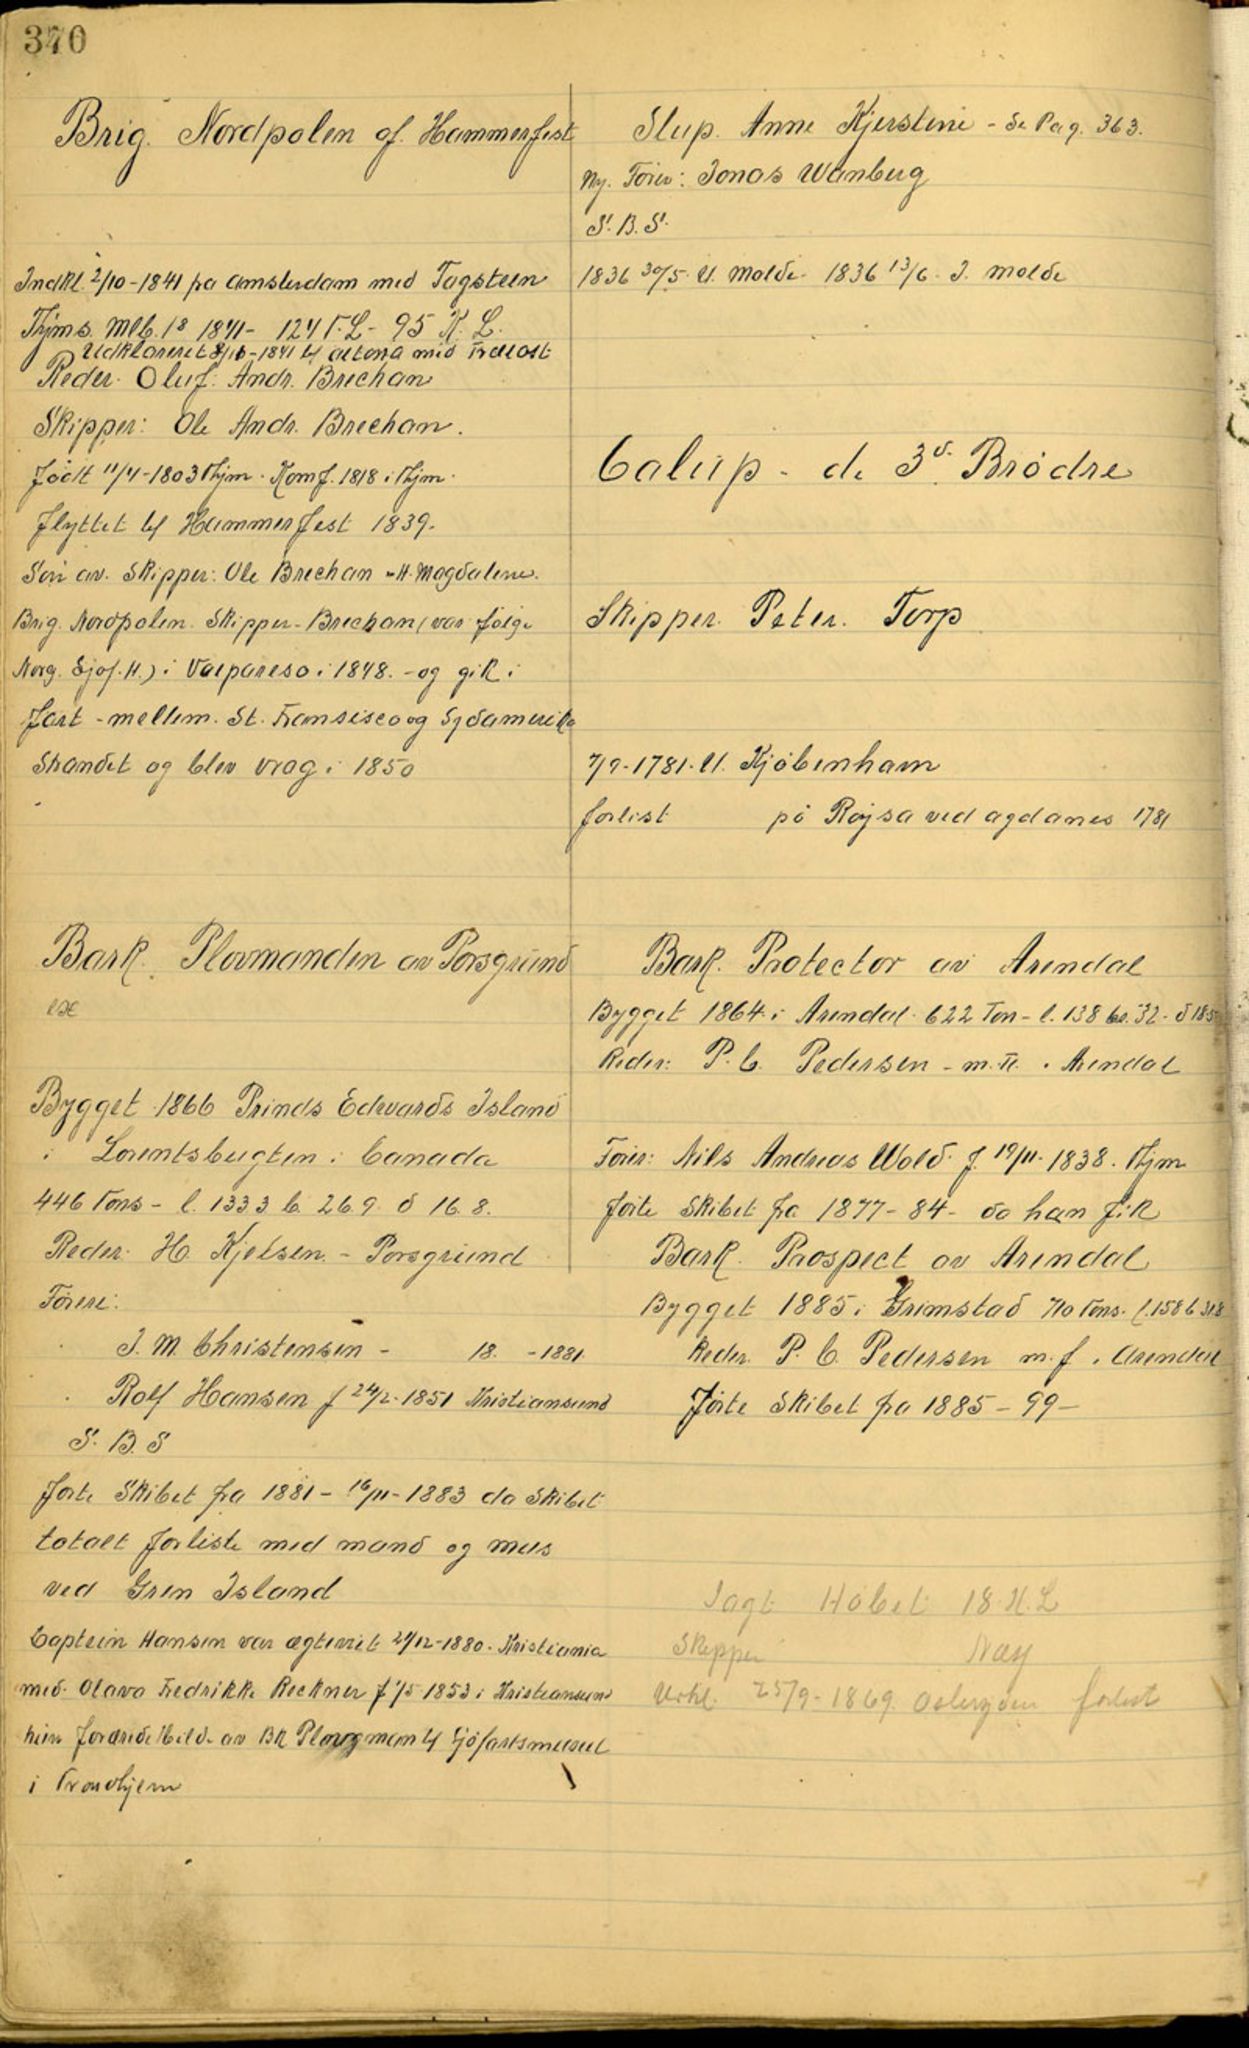 370
Brig. Nordpolen af. Hammerfest
Indkl. 2/10-1841 fra Amsterdam med Tagsteen
Thjms. Mlb. 18 1841- 124 T.L- 95 K. L.
Udklareret 8/10-1841 til Altona med
Reder. Oluf. Andr. Brechan
Skipper: Ole Andr. Brechan.
født 11/4-1803 Thjm. Komf. 1818 i Thjm.
flyttet til Hammerfest 1839.
Søn av. Skipper: Ole Brechan - H. Magdalene.
Brig. Nordpolen. Skipper. Brechan (var følge
Norg. Sjøf. H.) i Valpareso i 1848. - og gik i
fart - mellem. St. Fransisco og Sydamerika
Strandet og blev vrag i 1850
Bark. Plovmanden av Porsgrund
ex
Bygget 1866 Prinds Edvards Island
i Lorentsbugten i Canada
446 Tons - l. 133 3 b. 26.9. d 16.8.
Reder. H. Kjelsen. - Porsgrund
Førere:
J. M. Christensen - 18. - 1881.
Rolf Hansen f 24/2-1851 Kristiansund
S. B. S
førte Skibet fra 1881 - 16/11-1883 da Skibet
totalt forliste med mand og mus
ved Gren Island
Captein Hansen var ægteviet 29/12-1880. Kristiania
med. Olava Fredrikke Reckner f 1/5 1853 i Kristiansund
hun av Bk Plovgman til Sjøfartsmuseet
i Trondhjem
Slup. Anne Kjerstine - Se Pag. 363.
Ny. Fører: Jonas Wanberg
S. B. S.
1836 30/5. U. Molde. 1836 13/6. I. Molde
Calup - de 3de Brødre
Skipper. Peter. Torp
7/9-1781. U. Kjøbenham
forlist på Røysa ved agdanes 1781
Bark. Protector av Arendal
Bygget 1864 i Arendal. 622 Ton - l. 138 br. 32. d 18.5
Reder: P. C. Pedersen - m. fl. . Arendal
Fører: Nils Andreas Wold f. 19/11. 1838. Thjm
førte Skibet fra 1877-84 - da han fik
Bark. Prospect av Arendal
Bygget 1885 i Grimstad 710 Tons. l. 158 b 31.8
Reder. P. C. Pedersen m. f. Arendal
førte Skibet fra 1885-99-
Jagt Håbet 18. K. L
Skipper Næss
Udkl. 25/9-1869. forlist